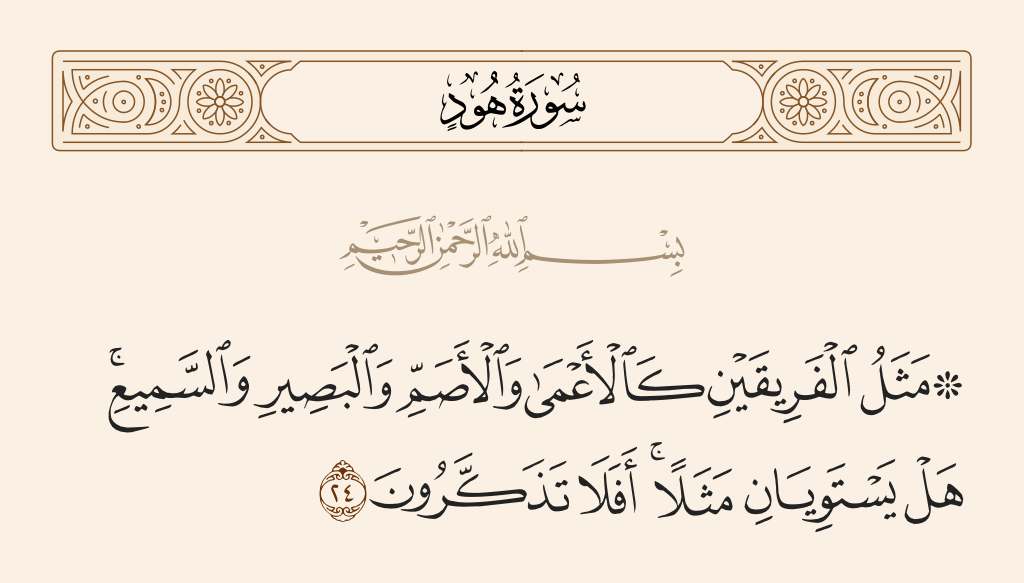 سُورَةُ هُودٍ
بِسْمِ ٱللَّهِ ٱلرَّحْمَٰنِ ٱلرَّحِيمِ
۞ مَثَلُ ٱلْفَرِيقَيْنِ كَٱلْأَعْمَىٰ وَٱلْأَصَمِّ وَٱلْبَصِيرِ وَٱلسَّمِيعِ ۚ
هَلْ يَسْتَوِيَانِ مَثَلًا ۚ أَفَلَا تَذَكَّرُونَ ٢٤